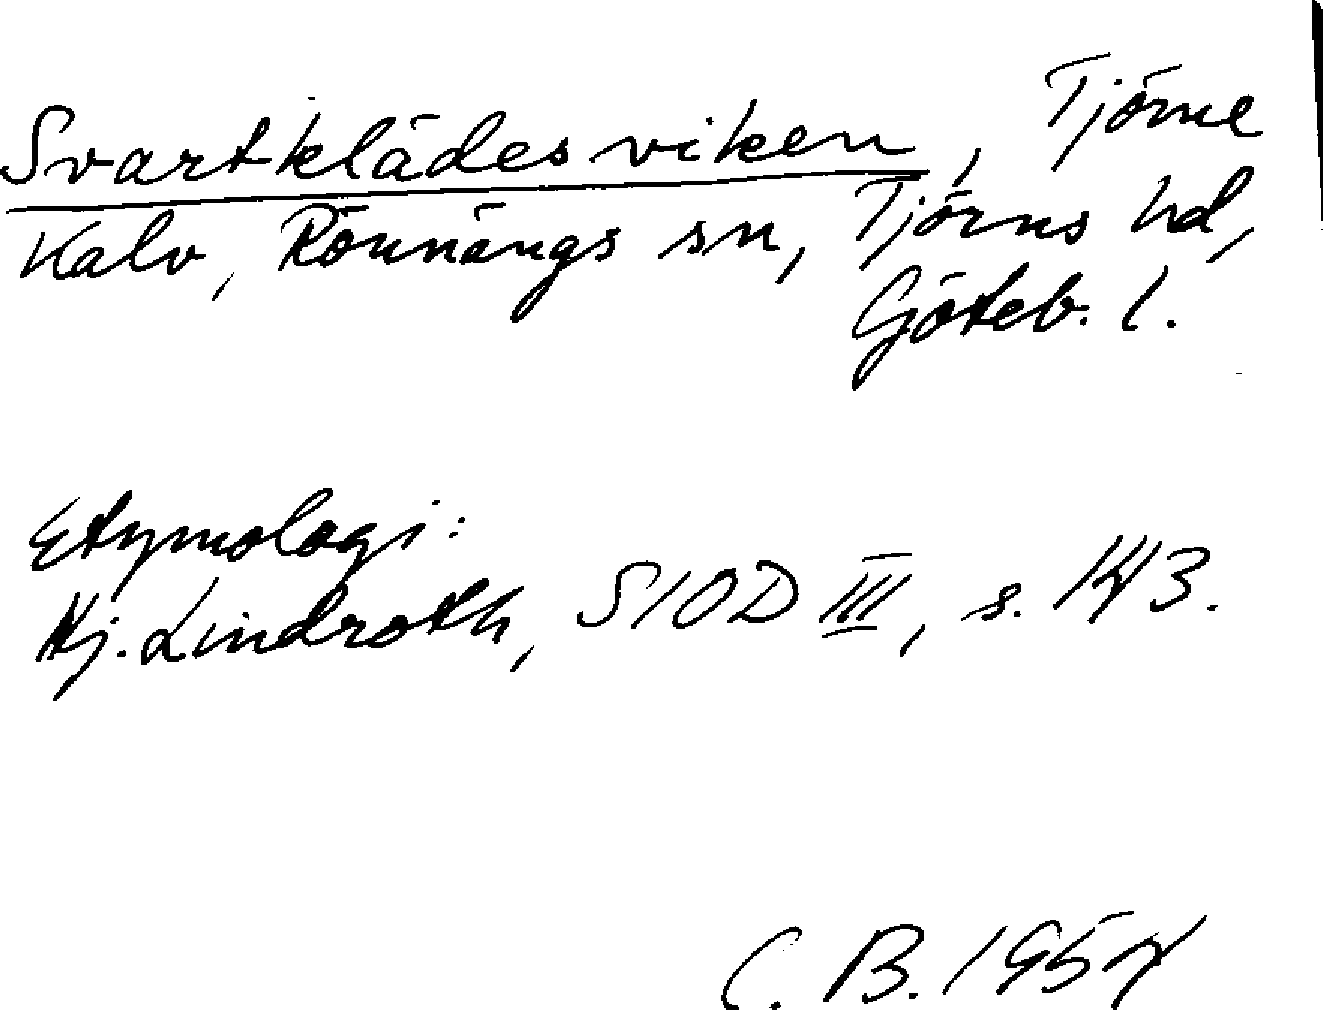 Svartklädesviken, Tjörne
Kalv, Rönnängs sn, Tjörns hd,
Göteb. l.
Etymologi:
Hj. Lindroth, SIOD III, s.
C. B. 1957